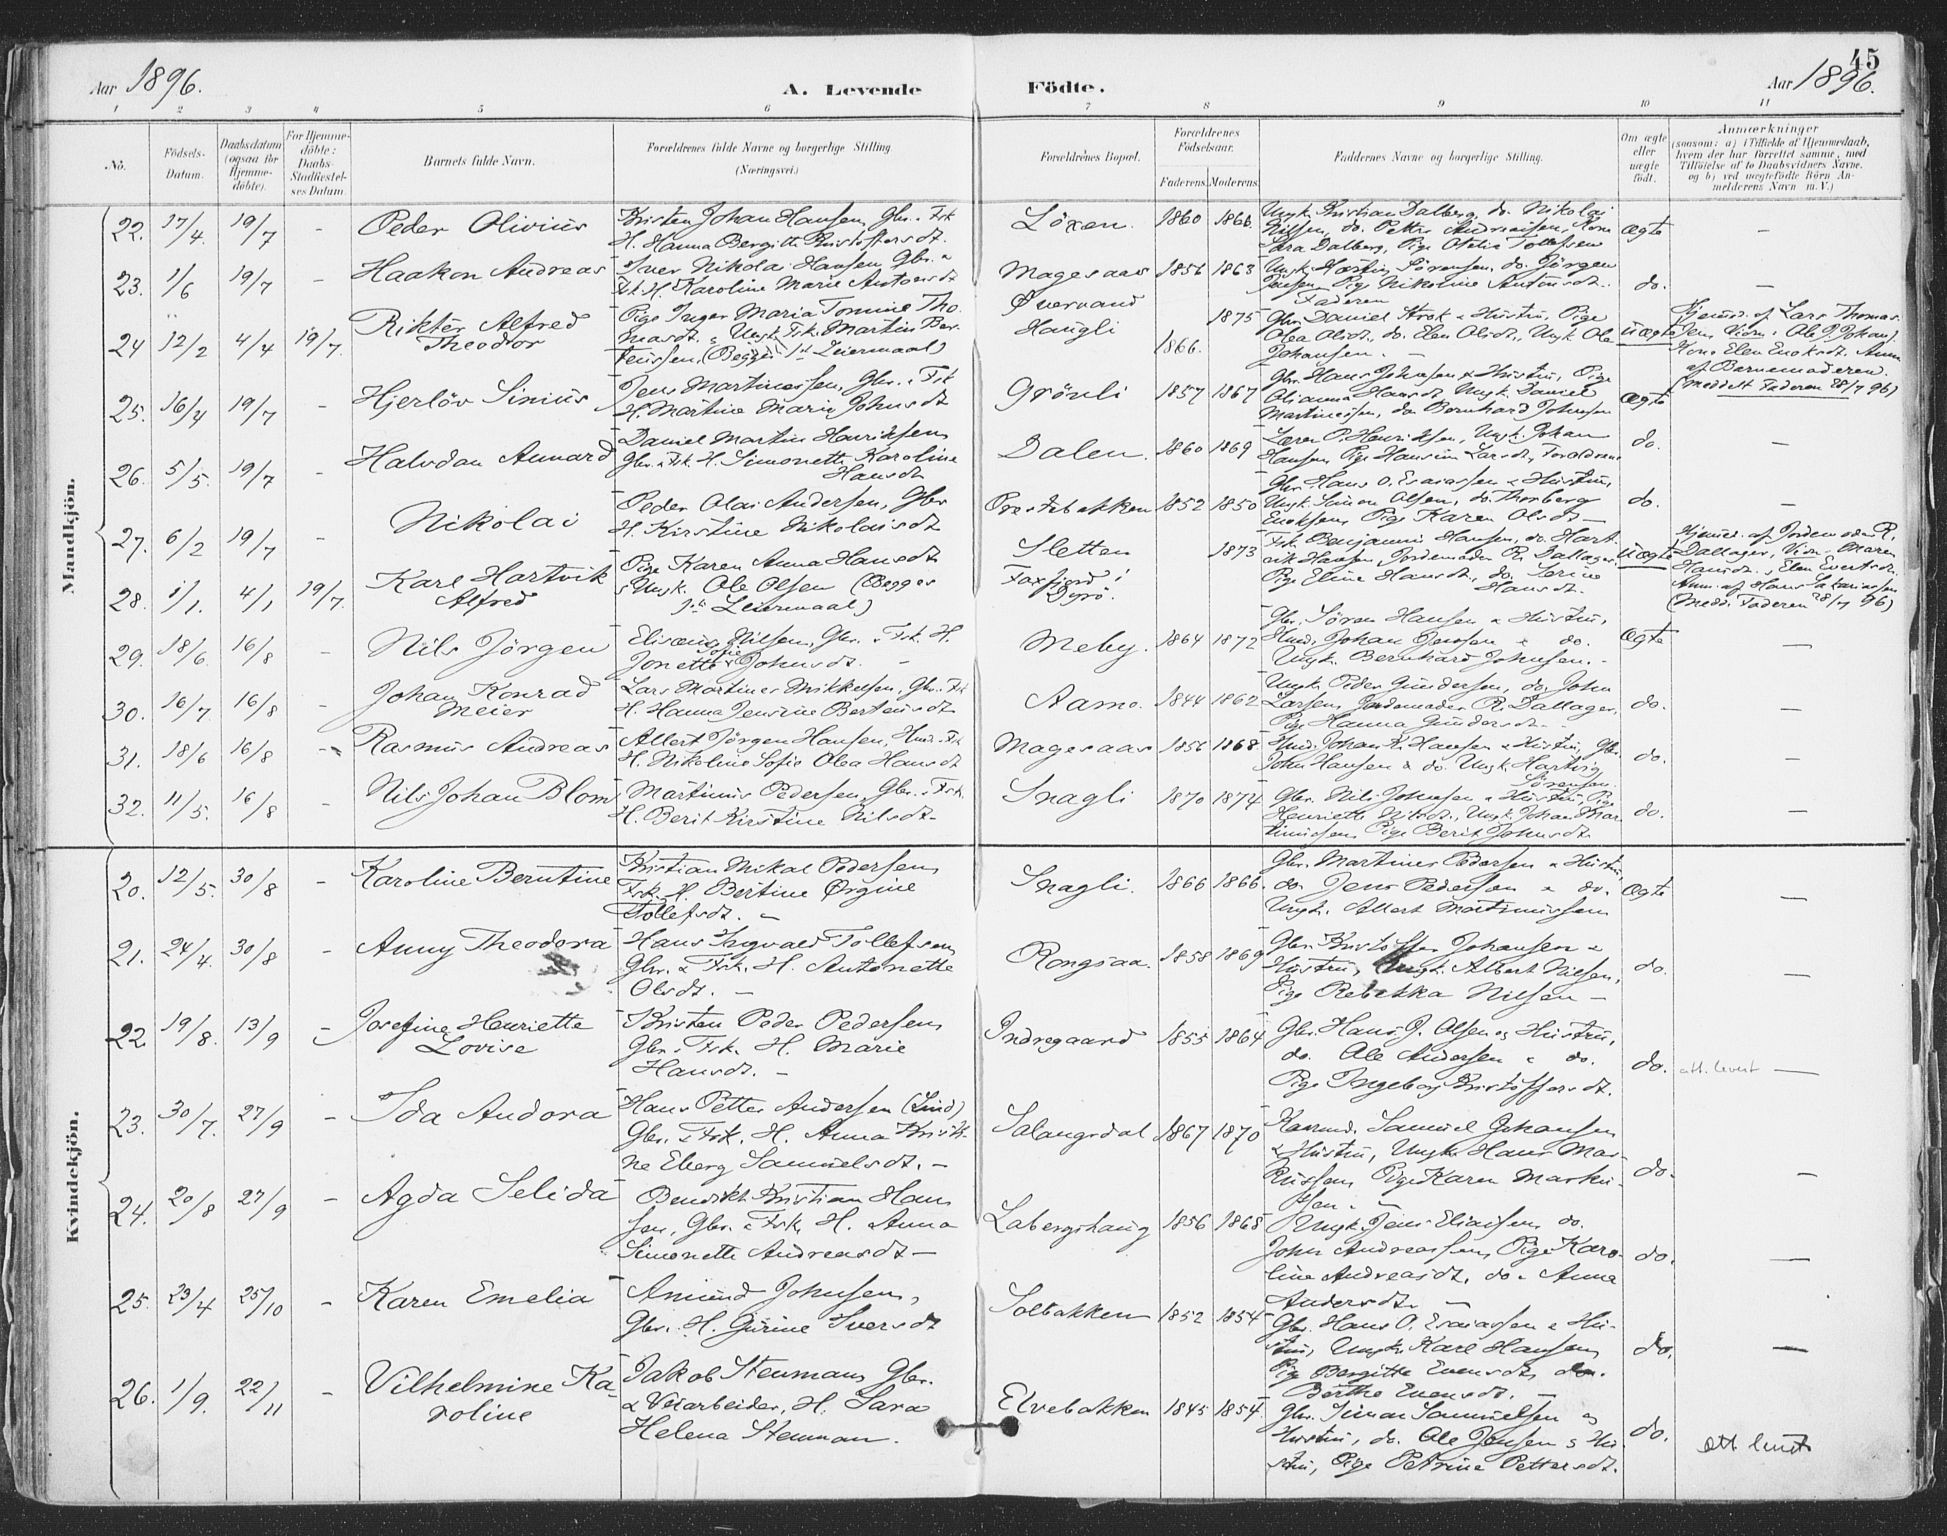 Aar 1896. A. Levende Födte. Aar 1896. 45
1 2 3 4 5 6 7 8 9 10 11
No. Födsels-Datum. Daabsdatum (ogsaa for Hjemme-döbte). For Hjemme-döbte: Daabs-Stadfæstel-ses Datum. Barnets fulde Navn. Forældrenes fulde Navne og borgerlige Stilling. (Næringsvei.) Forældrenes Bopæl. Forældrenes Födselsaar. Faderens Moderens Faddernes Navne og borgerlige Stilling. Om ægte eller uægte födt. Anmærkninger (saasom: a) i Tilfælde af Hjemmedaab, hvem der har forrettet samme, med Tilföielse af to Daabsvidners Navne. og b) ved uægtefödte Börn An-melderens Navn m. V.)
Mandkjön.
22. 17/4. 19/7 - Peder Olivius Kristen Johan Hansen, Gbr. & Fsk H. Hanna Bergitte Kristoffersdt. Löxen. 1860 1866. Ungk. Kristian Dalberg, do. Nikolai Nilsen, do. Petter Andreassen, Kone Sara Dalberg, Pige Otelie Tollefsen Ægte -
23. 1/6 19/7 - Haakon Andreas Iver Nikolai Hansen, Gbr. & Fsk. H. Karoline Marie Antonsdt Magesaas 1856 1863 Ungk. Hartvig Sörensen, do. Jörgen Jensen, Pige Nikoline Antonsdt. Faderen do. -
24 12/2 4/4 19/7. Riktér Alfred Theodor Pige Inger Maria Tomine Tho-masdt. & Ungk. Fsk. Martin Ber-teussen, (Begges 1st Leiermaal) Övervand Haugli 1866. 1875 Gbr. Daniel Strok & Hustru, Pige Olea Olsdt., do. Elen Olsdt., Ungk. Ole Johansen. - Uægte Hjemd. af Lars Thomas-sen Vidn: Ole J. Johans. Kone Elen Enoksdt. Anm. af Barnemoderen. (Meddelt Faderen 28/7 96)
25. 16/4 19/7 - Hjerlöv Sinius Jens Martinussen, Gbr. & Fsk H. Martine Marie Johnsdt Grönli 1857 1867 Gbr. Hans Johnsen & Hustru, Pige Olianna Hansdt, Ungk. Daniel Martinussen, do Bernhard Johnsen Ægte
26. 5/5. 19/7 - Halvdan Annard Daniel Martin Henriksen Gbr. & Fsk. H. Simonette Karoline Hansdt Dalen. 1860 1869 Lærer P. Henriksen, Ungk. Johan Hansen, Pige Hansine Larsdt, Forældrene do. -
27. 6/2 19/7 - Nikolai Peder Olai Andersen, Gbr H. Kirstine Nikolaisdt Prestbakken 1852 1850 Gbr. Hans O. Esaiassen & Hustru, Ungk. Simon Olsen, do. Thorberg Enoksen, Pige Karen Olsdt - do. -
28. 1/1. 4/1 19/7. Karl Hartvik Alfred Pige Karen Anna Hansdt & Ungk. Ole Olsen (Begges 1st Leiermaal) Sletten Foxfjord i Dyrö. 1873 Fsk. Benjamin Hansen, do. Hart-vik Hansen, Jordemoder R. Dallager, Pige Eline Hansdt., do. Serine Hansdt. Uægte Hjemd. af Jordemoder R. Dallager, Vidn. Maren Hansdt. & Elen Evertsdt. Anm. af Hans Sakariassen (Medd. Faderen 28/7 96)
29. 18/6. 16/8 - Nils Jörgen Elisæus Nilsen, Gbr. & Fsk. H. Jonette Sofie Johnsdt. - Meby. 1864 1872 Gbr. Sören Hansen & Hustru, Husm. Johan Jensen & do. Ungk. Bernhard Johnsen. - Ægte -
30. 16/7 16/8 - Johan Konrad Meier Lars Martines Mikkelsen, Gbr. & Fsk H. Hanna Jensine Berteusdt Aamo. 1844 1862 Ungk. Peder Gundersen, do. John Larsen, Jordemoder R. Dallager, Pige Hanna Gundersdt. - do. -
31. 18/6 16/8 - Rasmus Andreas Albert Jörgen Hansen, Husm. Fsk H. Nikoline Sofie Olea Hansdt Magesaas 1856 1868 Husm. Johan K. Hansen & Hustru, Gbr. John Hansen & do. Ungk. Hartvig Sörensen. do. -
32. 11/5. 16/8 - Nils Johan Blom Martinus Pedersen, Gbr. & Fsk. H. Berit Kirstine Nilsdt. Snagli 1870 1874 Gbr. Nils Johnsen & Hustru, Pige Henriette Nilsdt., Ungk. Johan Mar-tinussen, Pige Berit Johnsdt. do. -
Kvindekjön.
20. 12/5. 30/8 - Karoline Berntine Kristian Mikal Pedersen Fsk. H. Bertine Örgine Tollefsdt. - Snagli. 1866 1866. Gbr. Martines Pedersen & Hustru, do. Jens Pedersen & do. Ungk. Albert Martinussen Ægte -
21. 24/4. 30/8 - Anny Theodora Hans Ingvald Tollefsen, Gbr. & Fsk. H. Antonette Olsdt. - Rongsaa. 1858 1869 Gbr. Kristoffer Johansen & Hustru, Ungk. Albert Nilsen, Pige Rebekka Nilsen - do. -
22 19/8. 13/9 - Josefine Henriette Lovise Kristen Peder Pedersen Gbr. & Fsk. H. Marie Hansdt. - Indregaard 1855 1864 Gbr. Hans J. Olsen og Hustru, do. Ole Andersen & do. Pige Ingeborg Kristoffersdt. do. att. levert -
23. 30/7. 27/9 - Ida Andora Hans Petter Andersen (Lind) Gbr. & Fsk. H. Anna Kristi-ne Eberg Samuelsdt. - Salangsdal 1867 1870 Samuel Johansen & Hustru, Ungk. Hans Mar-kussen, Pige Karen Marku-ssen. - do. -
24. 20/8 27/9 - Agda Selida Benedikt Kristian Han-sen, Gbr. & Fsk. H. Anna Simonette Andreasdt - Labergshaug 1856 1865 Ungk. Jens Eliassen, do. John Andreassen, Pige Karo-line Andreasdt, do. Anna Andersdt. - do. -
25. 23/4 25/10 - Karen Emelia Amund Johnsen, Gbr. H. Gurine Iversdt Solbakken 1852 1854 Gbr. Hans O. Esaiassen & Hu-stru, Ungk. Karl Hansen, Pige Bergitte Evensdt, do. Berthe Evensdt. - do. -
26. 1/9. 22/11 - Vilhelmine Ka-roline Jakob Stenman, Gbr. & Veiarbeider, H. Sara Helena Stenman. Elvebakken 1845 1854. Gbr. Simon Samuelsen og Hustru, do. Ole Jensen & Hu-stru, Pige Petrine Pettersdt. do. att levert